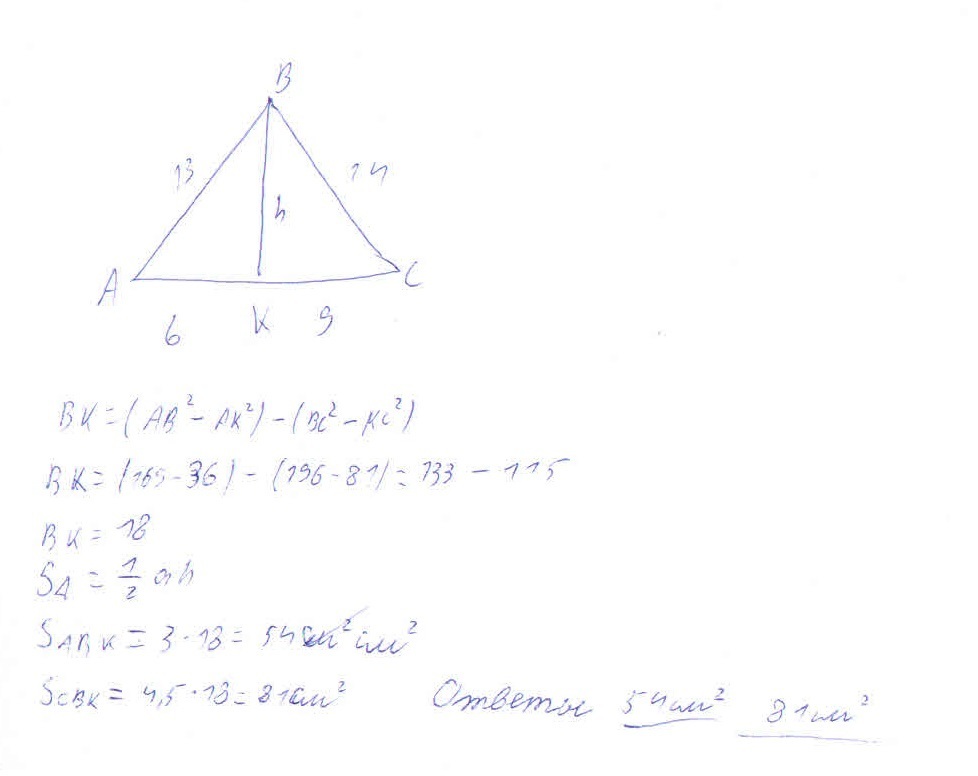 B
13
14
h
A
C
6
K
9
BK = (AB² - AK²) - (BC² - KC²)
BK = (169 - 36) - (196 - 81) = 133 - 115
BK = 18
S∆ = 1/2 ah
SABK = 3 · 18 = 54 см²
SCBK = 4,5 · 18 = 81 см²
Ответы 54 см² 81 см²